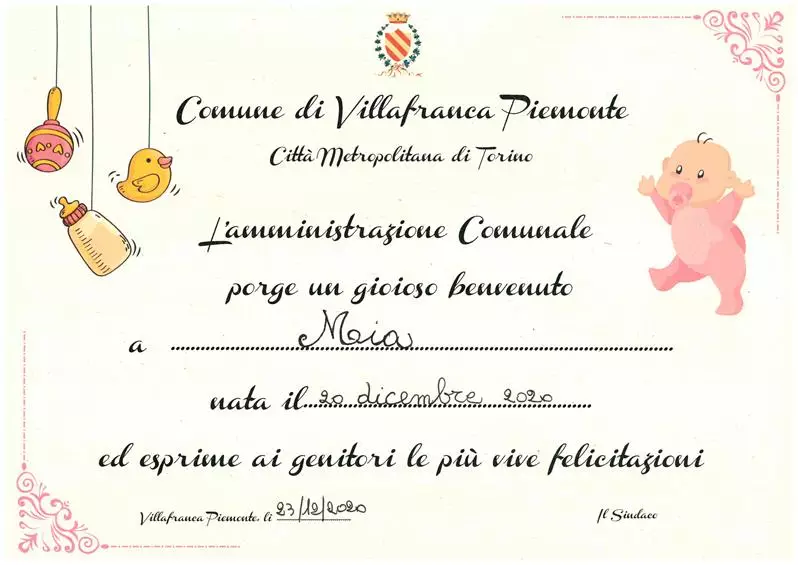 Comune di Villafranca Piemonte
Città Metropolitana di Torino
L'amministrazione Comunale
porge un gioioso benvenuto
a Mia
nata il 20 dicembre 2020
ed esprime ai genitori le più vive felicitazioni
Villafranca Piemonte, lì 23/12/2020
Il Sindaco